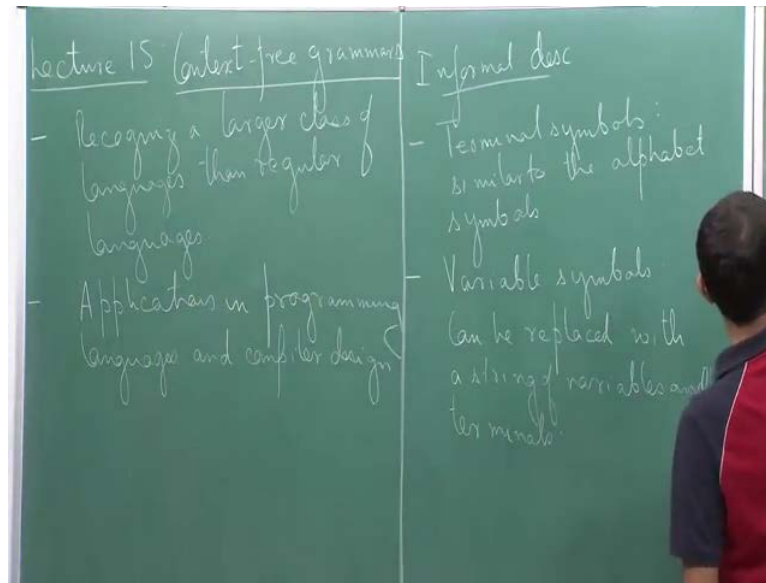 Lecture 15 Context-free grammars
- Recognize a larger class of
languages than regular
languages.
- Applications in programming
languages and compiler design
Informal desc
- Terminal symbols:
similar to the alphabet
symbols
- Variable symbols
Can be replaced with
a string of variables and
terminals.